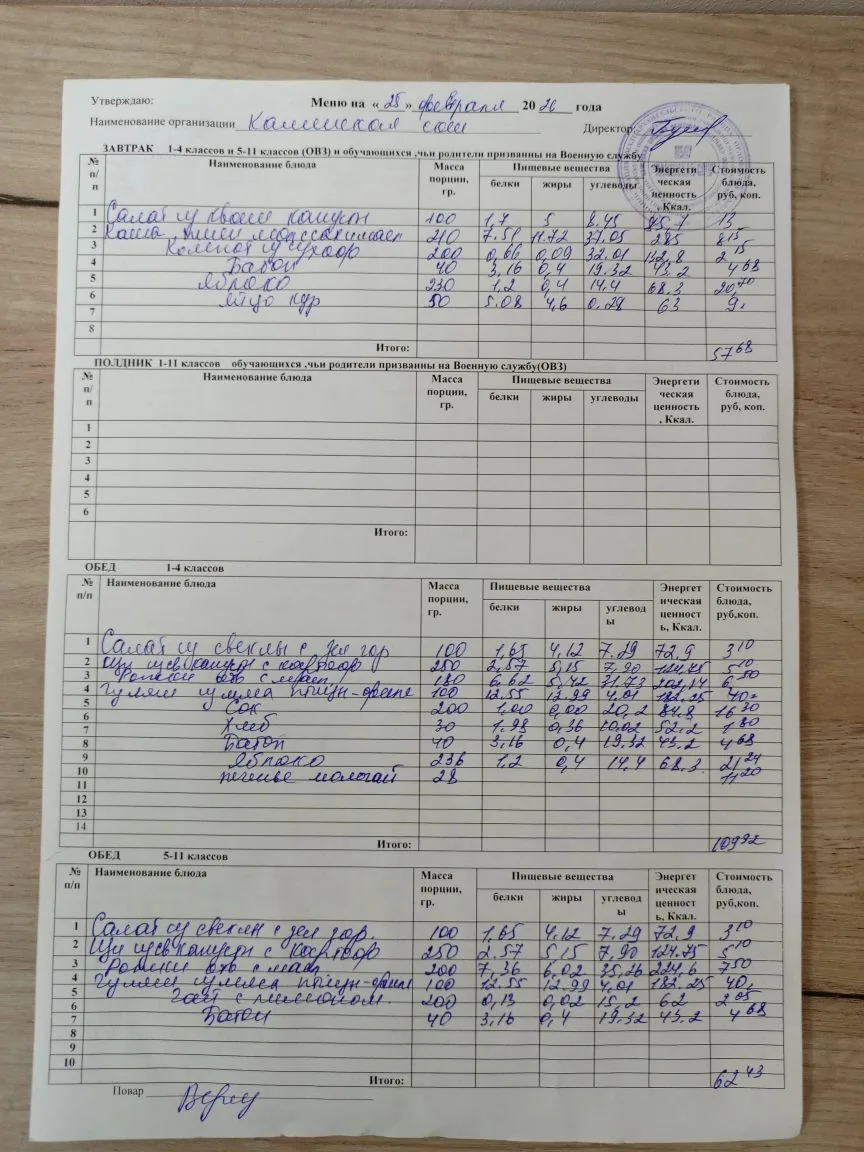 Утверждаю: Меню на « 25 » февраля 20 26 года
Наименование организации Калинская сош Директор:
ЗАВТРАК 1-4 классов и 5-11 классов (ОВЗ) и обучающихся ,чьи родители призванны на Военную службу
№ п/п Наименование блюда Масса порции, гр. Пищевые вещества Энергетическая ценность, Ккал. Стоимость блюда, руб, коп.
белки жиры углеводы
1 Салат из квашен капусты 100 1,7 5 8.45 85,7 13
2 Каша 210 7.51 11.72 37.05 285 8 15
3 Компот из сухофр 200 0,66 0,09 32.01 132,8 2 15
4 Батон 40 3,16 0,4 19.32 43.2 4 68
5 Яблоко 230 1.2 0,4 14,4 68.3 20,70
6 яйцо кур 50 5.08 4,6 0.28 63 9.
7
8
Итого: 57 68
ПОЛДНИК 1-11 классов обучающихся ,чьи родители призванны на Военную службу(ОВЗ)
№ п/п Наименование блюда Масса порции, гр. Пищевые вещества Энергетическая ценность, Ккал. Стоимость блюда, руб, коп.
белки жиры углеводы
1
2
3
4
5
6
Итого:
ОБЕД 1-4 классов
№ п/п Наименование блюда Масса порции, гр. Пищевые вещества Энергетическая ценность, Ккал. Стоимость блюда, руб,коп.
белки жиры углеводы
1 Салат из свеклы с зел гор 100 1,65 4,12 7.29 72,9 3 10
2 Щи из св капусты с картоф 250 2.57 5,15 7,90 124,75 5 10
3 с масл 180 6,62 5,42 31.73 202,14 6 50
4 Гуляш из мяса птицы-филе 100 12.55 12.99 4.01 182.25 40
5 Сок 200 1,00 0,00 20,2 84,8 16 30
6 Хлеб 30 1,98 0,36 10,02 52,2 1 80
7 Батон 40 3,16 0,4 19,32 43,2 4 68
8 Яблоко 236 1,2 0,4 14,4 68,3 21 24
9 печенье 28 11 20
10
11
12
13
14
Итого: 109 92
ОБЕД 5-11 классов
№ п/п Наименование блюда Масса порции, гр. Пищевые вещества Энергетическая ценность, Ккал. Стоимость блюда, руб,коп.
белки жиры углеводы
1 Салат из свеклы с зел гор. 100 1,65 4,12 7,29 72,9 3 10
2 Щи из св капусты с картоф 250 2.57 5,15 7,90 124.75 5 10
3 с масл 200 7,36 6,02 35,26 224,6 7 50
4 Гуляш из мяса птицы-филе 100 12.55 12.99 4,01 182.25 40,
5 Чай с лимоном. 200 0,13 0,02 15,2 62 2 05
6 Батон 40 3,16 0,4 19,32 43,2 4 68
7
8
9
10
Итого: 62 43
Повар